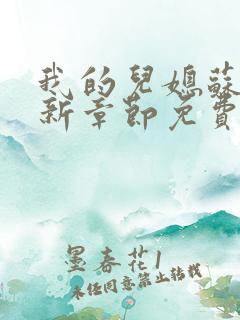 我的兒媳蘇
新章節免費
墨春花1
未任同意禁止转载